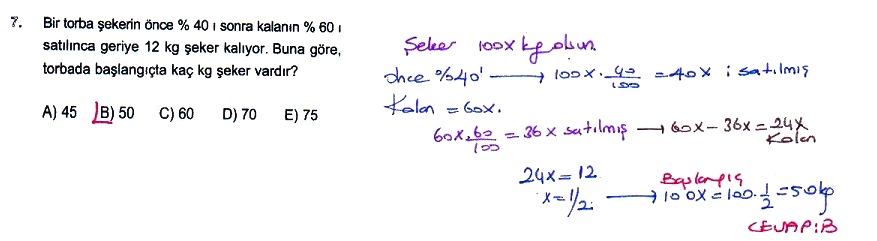 7. Bir torba şekerin önce % 40 ı sonra kalanın % 60 ı
satılınca geriye 12 kg şeker kalıyor. Buna göre,
torbada başlangıçta kaç kg şeker vardır?
A) 45 B) 50 C) 60 D) 70 E) 75
Şeker 100x kg olsun.
önce %40' → 100x · 40/100 = 40x i satılmış
Kalan = 60x.
60x · 60/100 = 36x satılmış → 60x - 36x = 24x
Kalan
24x = 12
x = 1/2
Başlangıç
→ 100x = 100 · 1/2 = 50kg
CEVAP: B